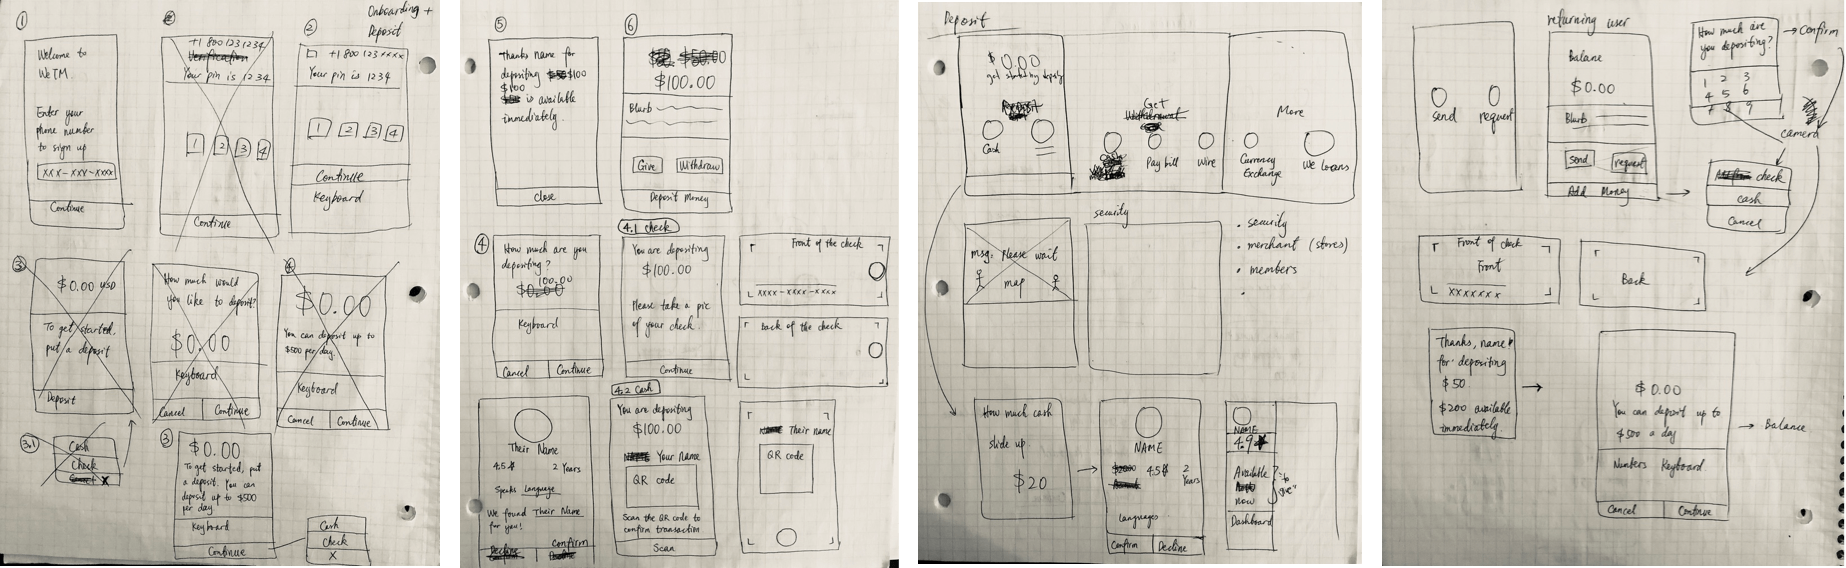 Onboarding +
Deposit
①
Welcome to
WeTM.
Enter your
phone number
to sign up
xxx-xxx-xxxx
Continue
+1 800 123 1234
Verification
Your pin is 1234
1 2 3 4
Continue
②
+1 800 123 xxxx
Your pin is 1234
1 2 3 4
Continue
Keyboard
③
$0.00 USD
To get started,
put a deposit
Deposit
How much would
you like to deposit?
$0.00
Keyboard
Cancel Continue
④
$0.00
You can deposit up to
$500 per day.
Keyboard
Cancel Continue
3.1
Cash
Check
X
③
$0.00
To get started, put
a deposit. You can
deposit up to $500
per day
Keyboard
Continue
Cash
Check
X
⑤
Thanks name for
depositing $100
$100
is available
immediately.
Close
⑥
$100.00
Blurb
Give Withdraw
Deposit Money
④
How much are you
depositing?
100.00
$0.00
Keyboard
Cancel Continue
4.1 check
You are depositing
$100.00
Please take a pic
of your check.
Continue
Front of the check
xxxx-xxxx-xxxx
back of the check
Their Name
4.5 2 Years
Speaks Language
We found Their Name
for you!
Decline Confirm
4.2 Cash
You are depositing
$100.00
Your Name
QR code
Scan the QR code to
confirm transaction
Scan
Their name
QR code
Deposit
$0.00
get started by deposit
Deposit
Cash
Get
Withdrawal
Pay bill
Wire
More
Currency
Exchange
We Loans
msg: Please wait
map
security
• security
• merchant (stores)
• members
•
How much cash
slide up.
$20
NAME
4.5 2
Years
Languages
Confirm Decline
NAME
4.9★
Available
now
"to
give"
Dashboard
send request
returning user
Balane
$0.00
Blurb
send request
Add Money
How much are
you depositing?
1 2 3
4 5 6
7 8 9
→ Confirm
camera
check
cash
Cancel
Front of check
Front
xxxxxxx
Back
Thanks, name
for depositing
$50
$200 available
immediately.
$0.00
You can deposit up to
$500 a day
Numbers Keyboard
Cancel Continue
→ Balance